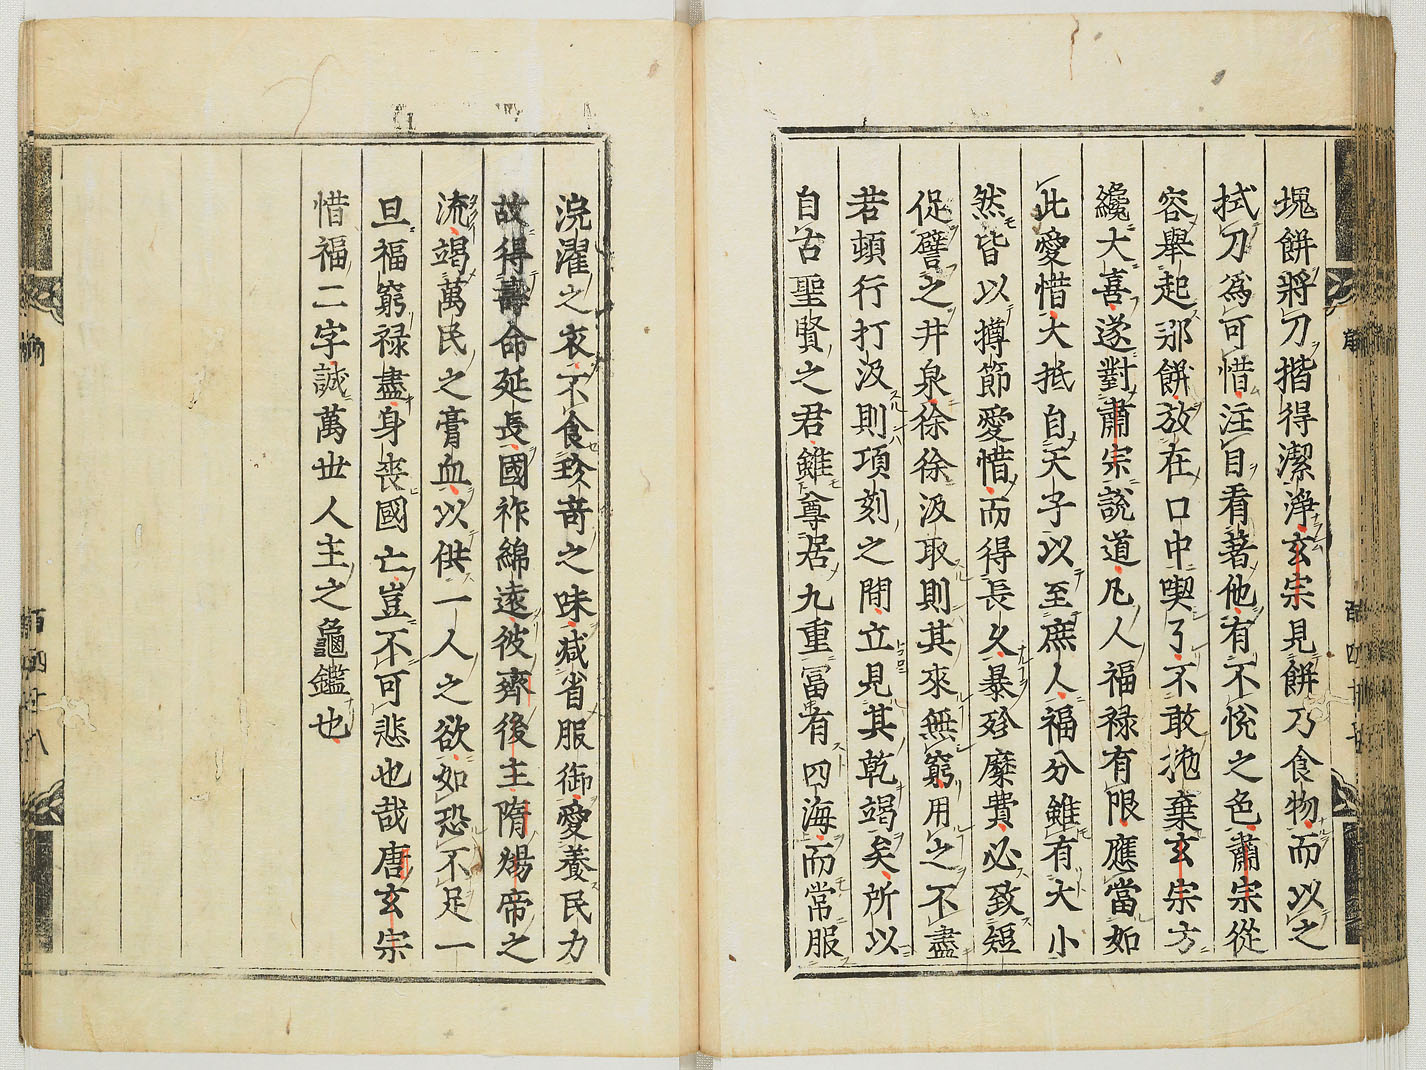 塊餅將刀揩得潔淨玄宗見餅乃食物而以之
拭刀爲可惜注目看著他有不悅之色肅宗從
容舉起那餅放在口中喫了不敢抛棄玄宗方
纔大喜遂對肅宗說道凡人福祿有限應當如
此愛惜大抵自天子以至庶人福分雖有大小
然皆以撙節愛惜而得長久暴殄糜費必致短
促譬之井泉徐徐汲取則其來無窮用之不盡
若頓行打汲則項刻之間立見其乾竭矣所以
自古聖賢之君雖尊居九重冨有四海而常服
浣濯之衣不食珍奇之味減省服御愛養民力
故得壽命延長國祚綿遠彼齊後主隋煬帝之
流竭萬民之膏血以供一人之欲如恐不足一
旦福窮祿盡身喪國亡豈不可悲也哉唐玄宗
惜福二字誠萬世人主之龜鑑也